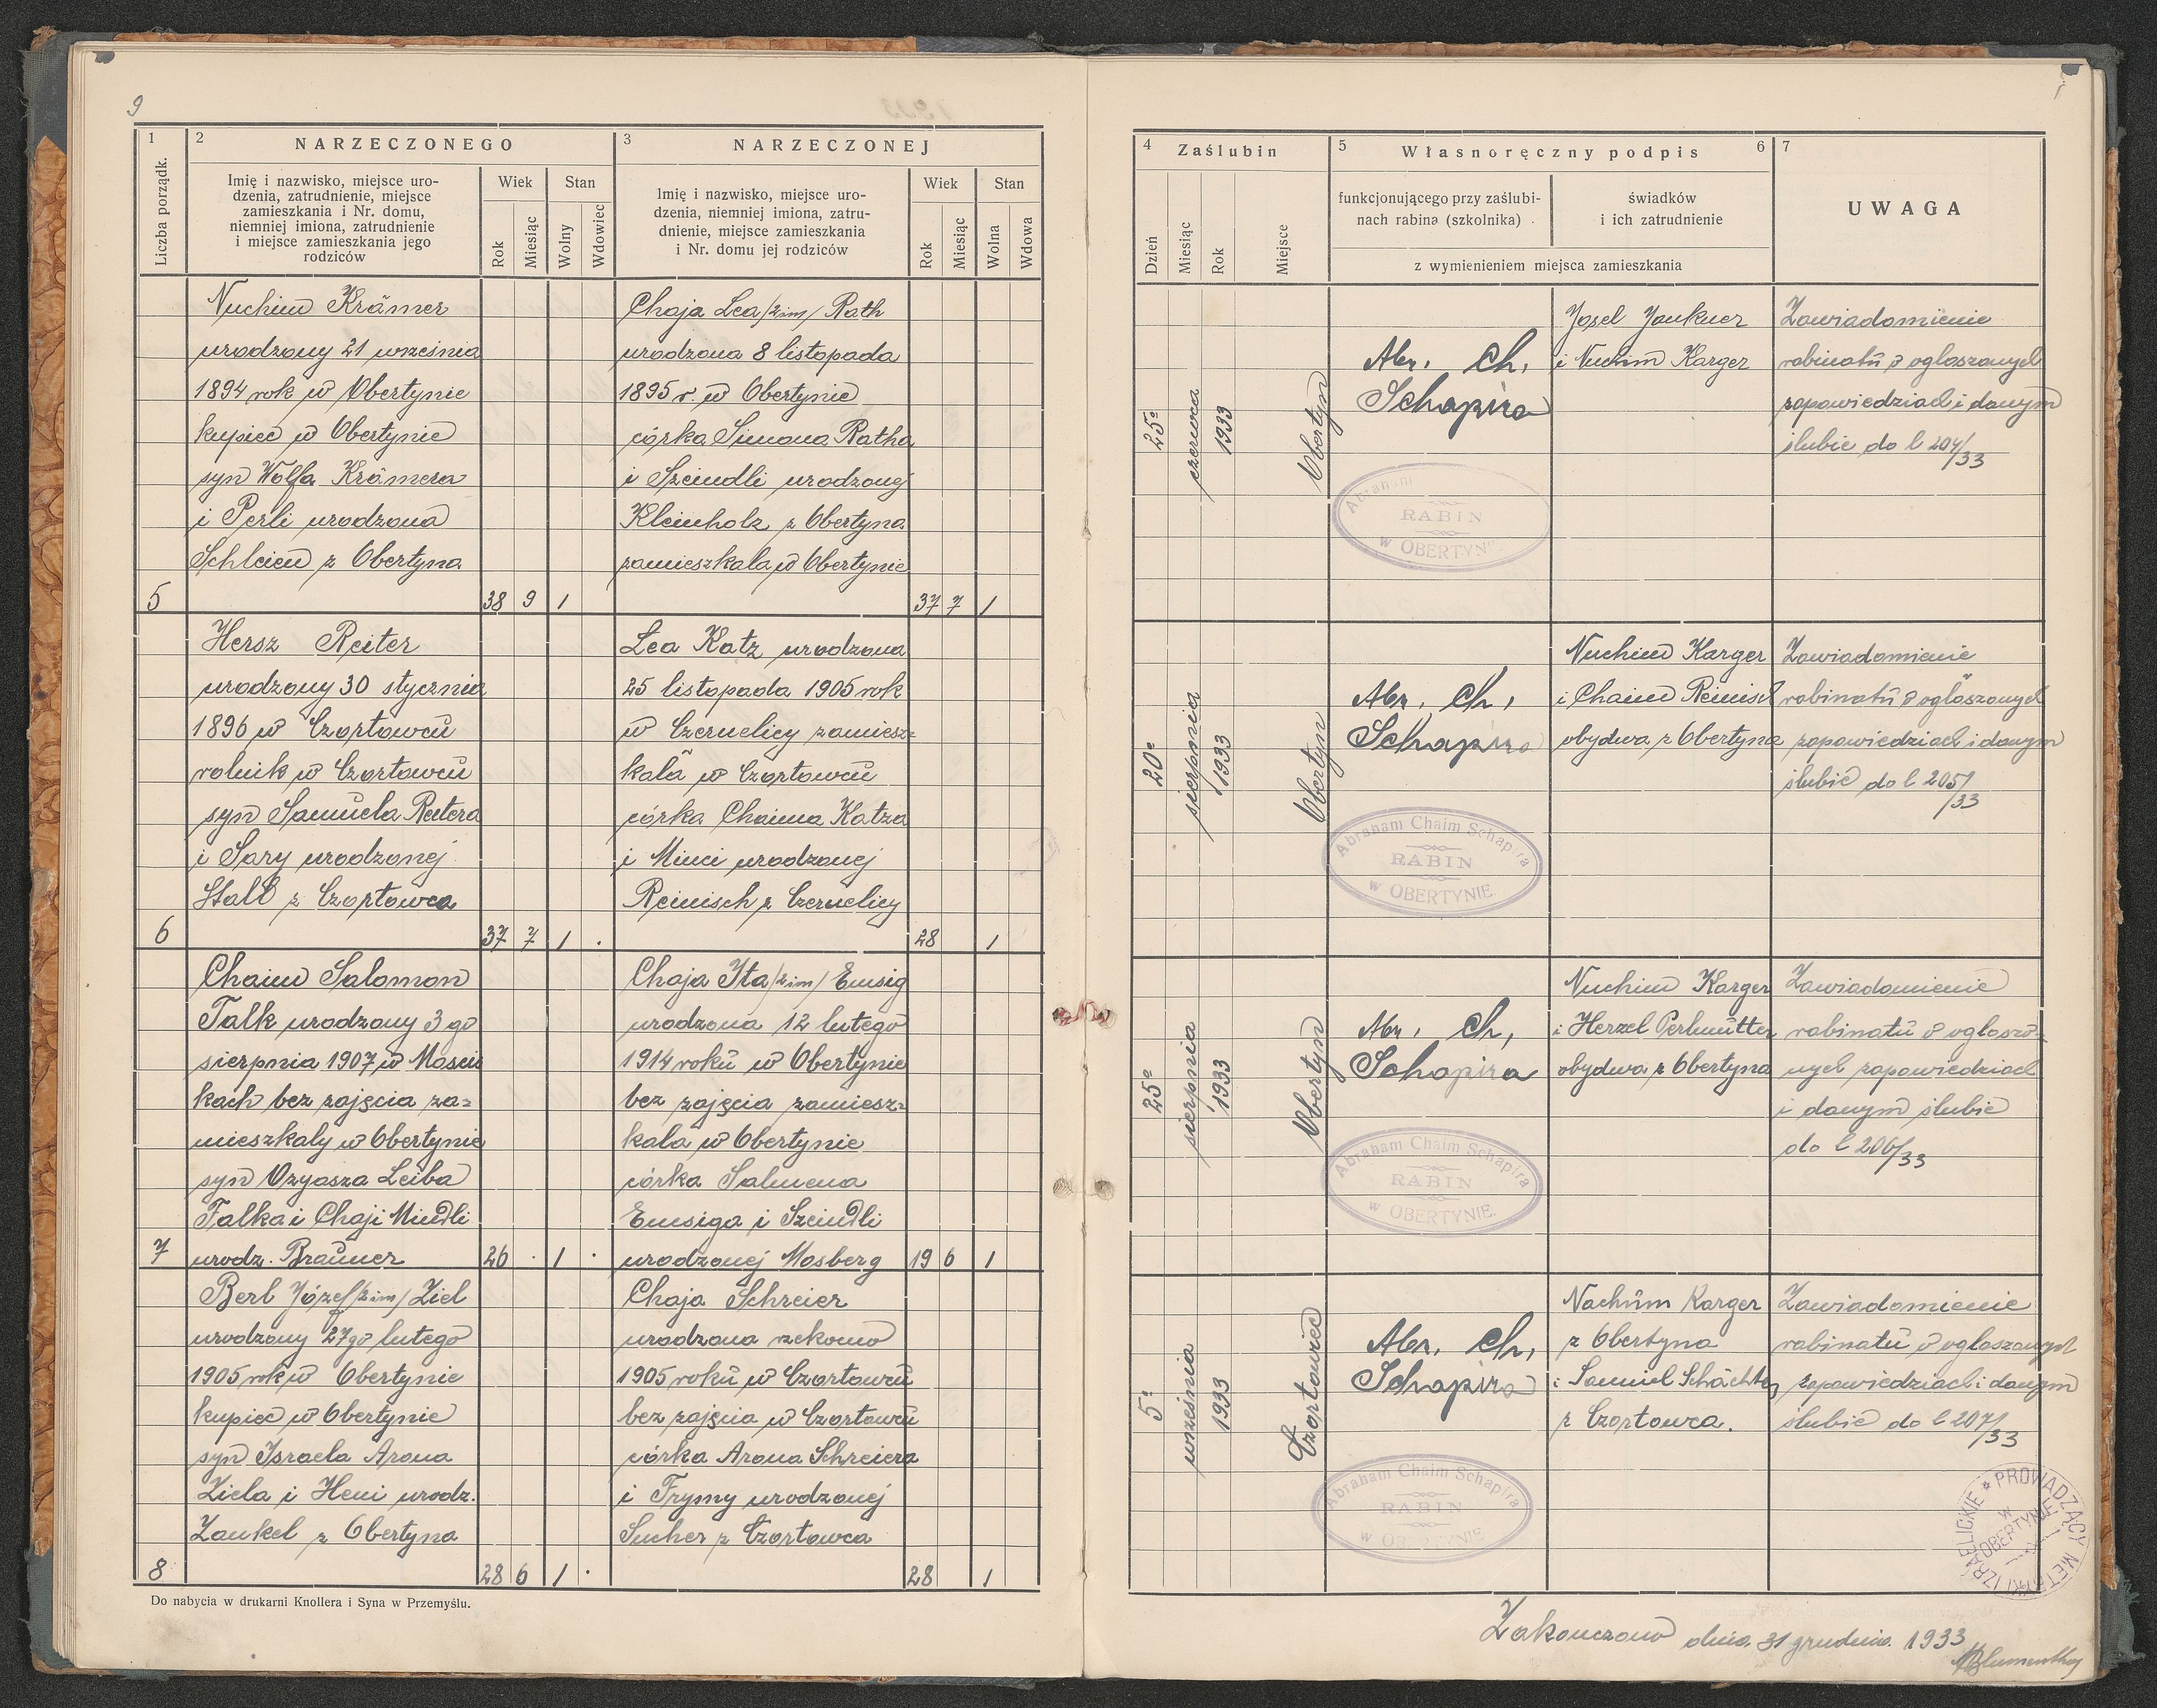 9
1
2
NARZECZONEGO
3
NARZECZONEJ
Liczba porządk.
Imię i nazwisko, miejsce uro-
dzenia, zatrudnienie, miejsce
zamieszkania i Nr. domu,
niemniej imiona, zatrudnienie
i miejsce zamieszkania jego
rodziców
Wiek
Stan
Rok
Miesiąc
Wolny
Wdowiec
Imię i nazwisko, miejsce uro-
dzenia, niemniej imiona, zatru-
dnienie, miejsce zamieszkania
i Nr. domu jej rodziców
Wiek
Stan
Rok
Miesiąc
Wolna
Wdowa
Nuchim Krämer
urodzony 21 września
1894 rok w Obertynie
kupiec w Obertynie
syn Wolfa Krämera
i Perli urodzona
Schleien z Obertyna
5
38 9 1
Chaja Lea /2im/ Rath
urodzona 8 listopada
1895 r. w Obertynie
córka Simona Ratha
i Szeindli urodzonej
Kleinholz z Obertyna
zamieszkala w Obertynie
37 7 1
Hersz Reiter
urodzony 30 stycznia
1896 w Czortowcu
rolnik w Czortowcu
syn Samuela Reitera
i Sary urodzonej
Stall z Czortowca
6
37 7 1 .
Lea Katz urodzona
25 listopada 1905 rok
w Czernelicy zamiesz=
kala w Czortowcu
córka Chaima Katza
i Minci urodzonej
Reinisch z Czernelicy
28 1
Chaim Salomon
Falk urodzony 3 go
sierpnia 1907 w Moscis
kach bez zajęcia za=
mieszkaly w Obertynie
syn Ozyasza Leiba
Falka i Chaji Mindli
urodz. Brauner
7
26 . 1 .
Chaja Ita /2im/ Emsig
urodzona 12 lutego
1914 roku w Obertynie
bez zajęcia zamiesz=
kala w Obertynie
córka Salmena
Emsiga i Szeindli
urodzonej Mosberg
19 6 1
Berl Józef /2im/ Ziel
urodzony 27 go lutego
1905 rok w Obertynie
kupiec w Obertynie
syn Israela Arona
Ziela i Heni urodz.
Zankel z Obertyna
8
28 6 1 .
Chaja Schreier
urodzona rzekomo
1905 roku w Czortowcu
bez zajęcia w Czortowcu
córka Arona Schreiera
i Frymy urodzonej
Sucher z Czortowca
28 1
Do nabycia w drukarni Knollera i Syna w Przemyślu.
4
Zaślubin
5
Własnoręczny podpis
6
7
Dzień
Miesiąc
Rok
Miejsce
funkcjonującego przy zaślubi-
nach rabina (szkolnika)
świadków
i ich zatrudnienie
z wymienieniem miejsca zamieszkania
UWAGA
25o
czerwca
1933
Obertyn
Abr. Ch.
Schapira
Abraham
RABIN
w OBERTYNIE
Josel Jankner
i Nuchim Karger
Zawiadomienie
rabinatu o ogloszonych
zapowiedziach i danym
slubie do l 204/33
20o
sierpnia
1933
Obertyn
Abr. Ch.
Schapira
Abraham Chaim Schapira
RABIN
w OBERTYNIE
Nuchim Karger
i Chaim Reinisch
obydwa z Obertyna
Zawiadomienie
rabinatu o ogloszonych
zapowiedziach i danym
slubie do l 205/33
25o
sierpnia
1933
Obertyn
Abr. Ch.
Schapira
Abraham Chaim Schapira
RABIN
w OBERTYNIE.
Nuchim Karger
i Herzel Perlmutter
obydwa z Obertyna
Zawiadomienie
rabinatu o ogloszo=
nych zapowiedziach
i danym slubie
do l 206/33
5o
września
1933
Czortowiec
Abr. Ch.
Schapira
Abraham Chaim Schapira
RABIN
w OBERTYNIE
Nachum Karger
z Obertyna
i Samuel Schächter
z Czortowca.
Zawiadomienie
rabinatu o ogloszonych
zapowiedziach i danym
slubie do l 207/33
PROWADZĄCY METRYKI IZRAELICKIE
W
OBERTYNIE
Zakonczono dnia 31 grudnia 1933